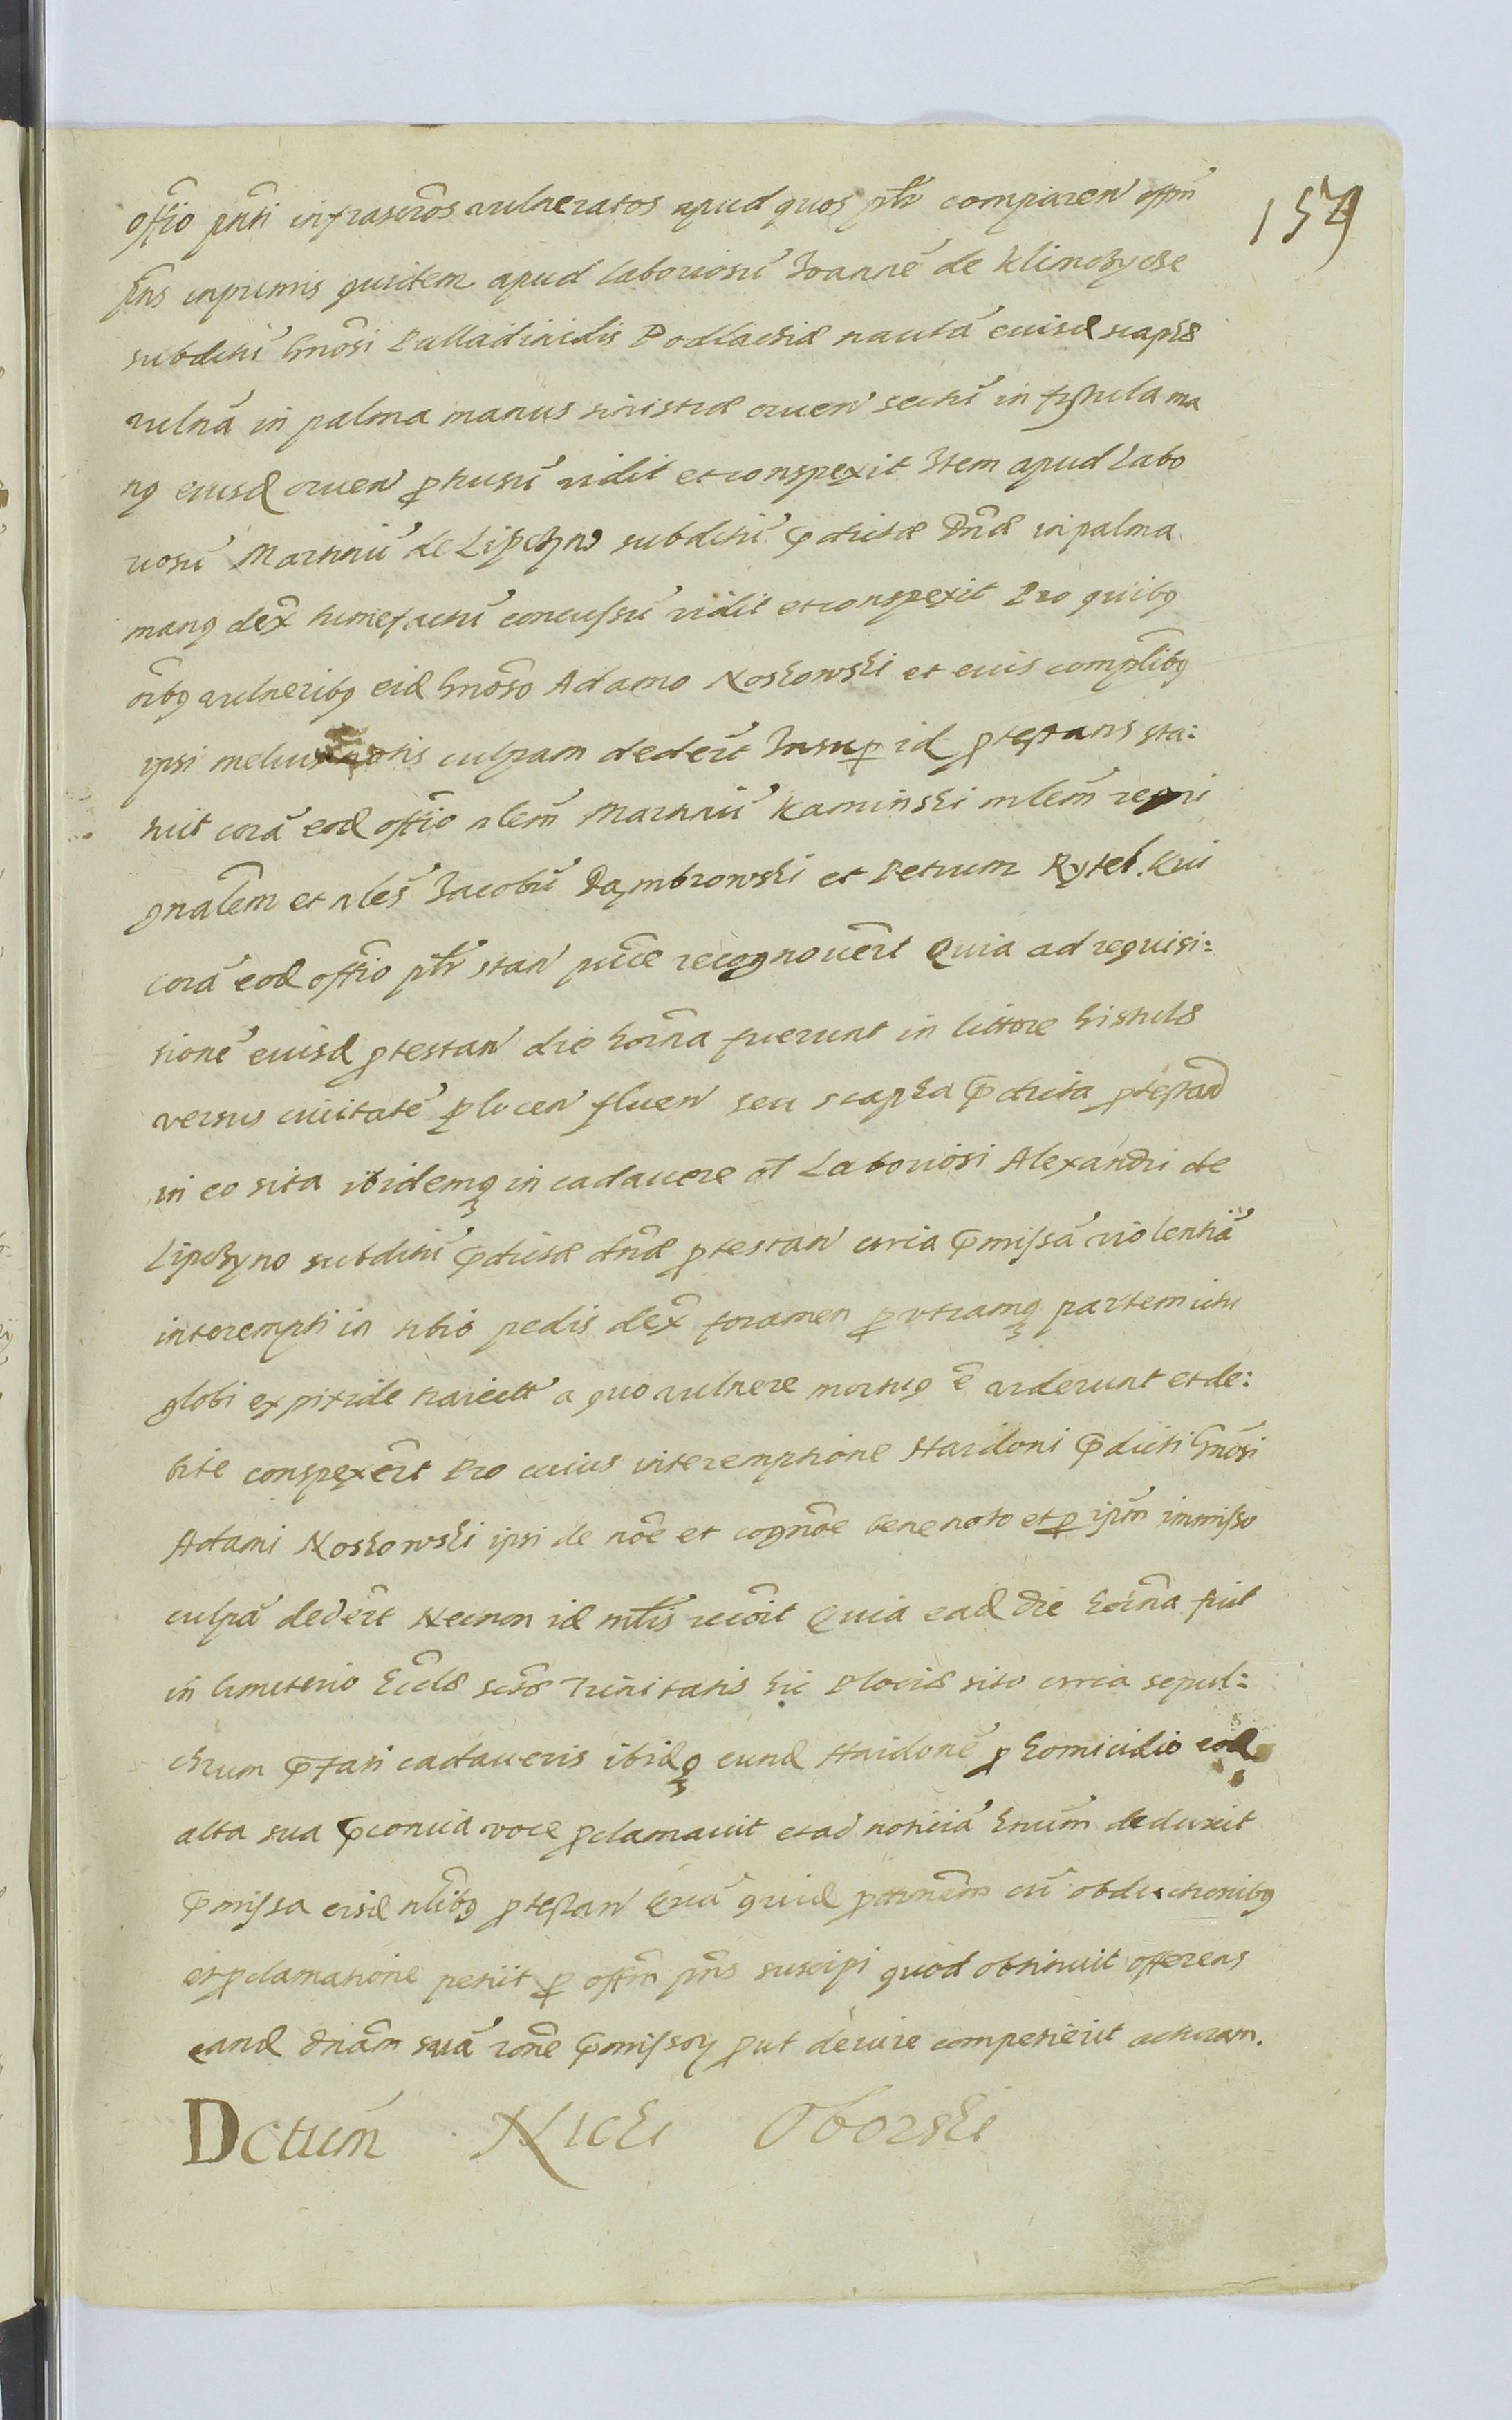 159
offio pnti infrascros vulneratos apud quos pltr comparen offm
pns inprimis quidem apud laboriosu Joanne de Klimchycze
subditu Gnosi Palladinidis Podlachiæ nauta eiusd scaphæ
vulna in palma manus sinistræ cruen sectu in fistula ma
nq eiusd cruen ptusu vidit et conspexit Item apud Labo
riosu Martinu de subditu pdictæ Dnæ in palma
manq dex tumefactu concussu vidit et conspexit Pro quibq
oibq vulneribq eid Gnoso Adamo Noskowski et eius complibq
ipsi melius notis culpam dedert Insup id ptestans sta:
tuit cora eod offio nlem Martinu Kaminski mlem regni
gnalem et nles Jacobu Dambrowski et Petrum Rytel. Kui
cora eod offio pltr stan pnce recognouert Quia ad requisi:
tione eiusd ptestan die horna fuerunt in littore Histulæ
versus ciuitate plocen fluen seu scapha pdicta ptestan
in eo sita ibidemq in cadauere ol Laboriosi Alexandri de
Lipchyno subditu pdictæ dnæ ptestan circa pmissa violentia
interempti in tibio pedis dex foramen p utramq partem ictu
globi ex pixide traiectu a quo vulnere mortuq e viderunt et de:
bite conspexert Pro cuius interemptione Haidoni pdicti Gnosi
Adami Noskowski ipsi de noe et cognoe bene noto et p ipm immisso
culpa dedert Necnon id mlis recoit Quia ead die horna fuit
in Cimeterio Ecclæ sctæ Trinitatis hic Plociæ sito circa sepul:
chrum pfati cadaueris ibidq eund Haidone p homicidio eod
alta sua pconica voce pclamauit et ad noticia hnum deduxit
pmissa eisd nlibq ptestan Qua quid ptnem cu obductionibq
et pclamatione petiit p offm pns suscipi quod obtinuit offerens
eand dnam sua rone pmissor put de iure competierit acturam.
Dctum Nicki Oborski